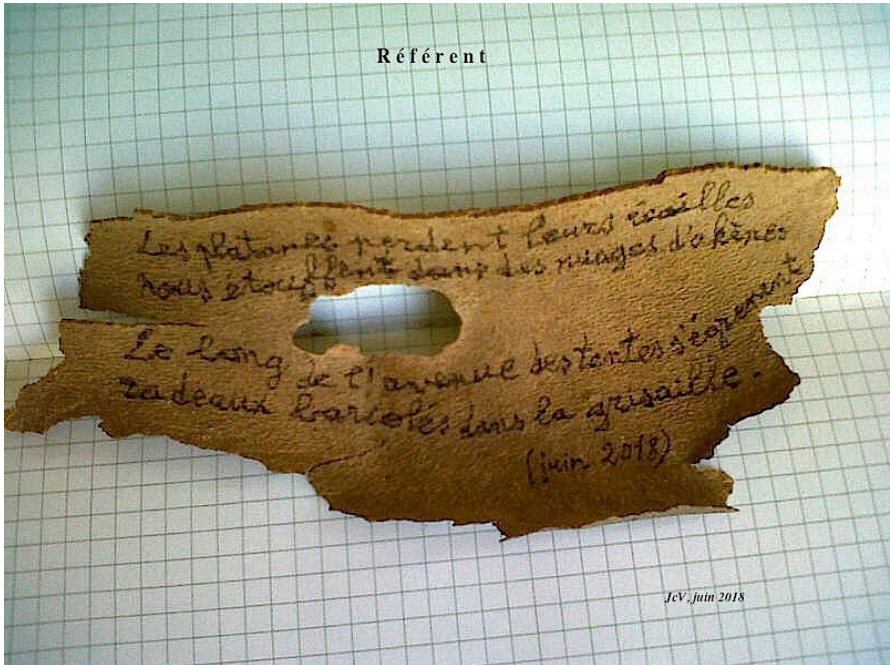 Référent
Les platanes perdent leurs écailles
nous étouffent dans des nuages d'akènes
Le long de l'avenue des tentes s'égrenent
radeaux bariolés dans la grisaille.
(juin 2018)
JcV, juin 2018